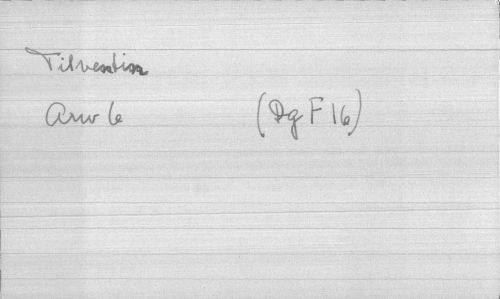 Tilvention
Arw 6 (Dg F 16)